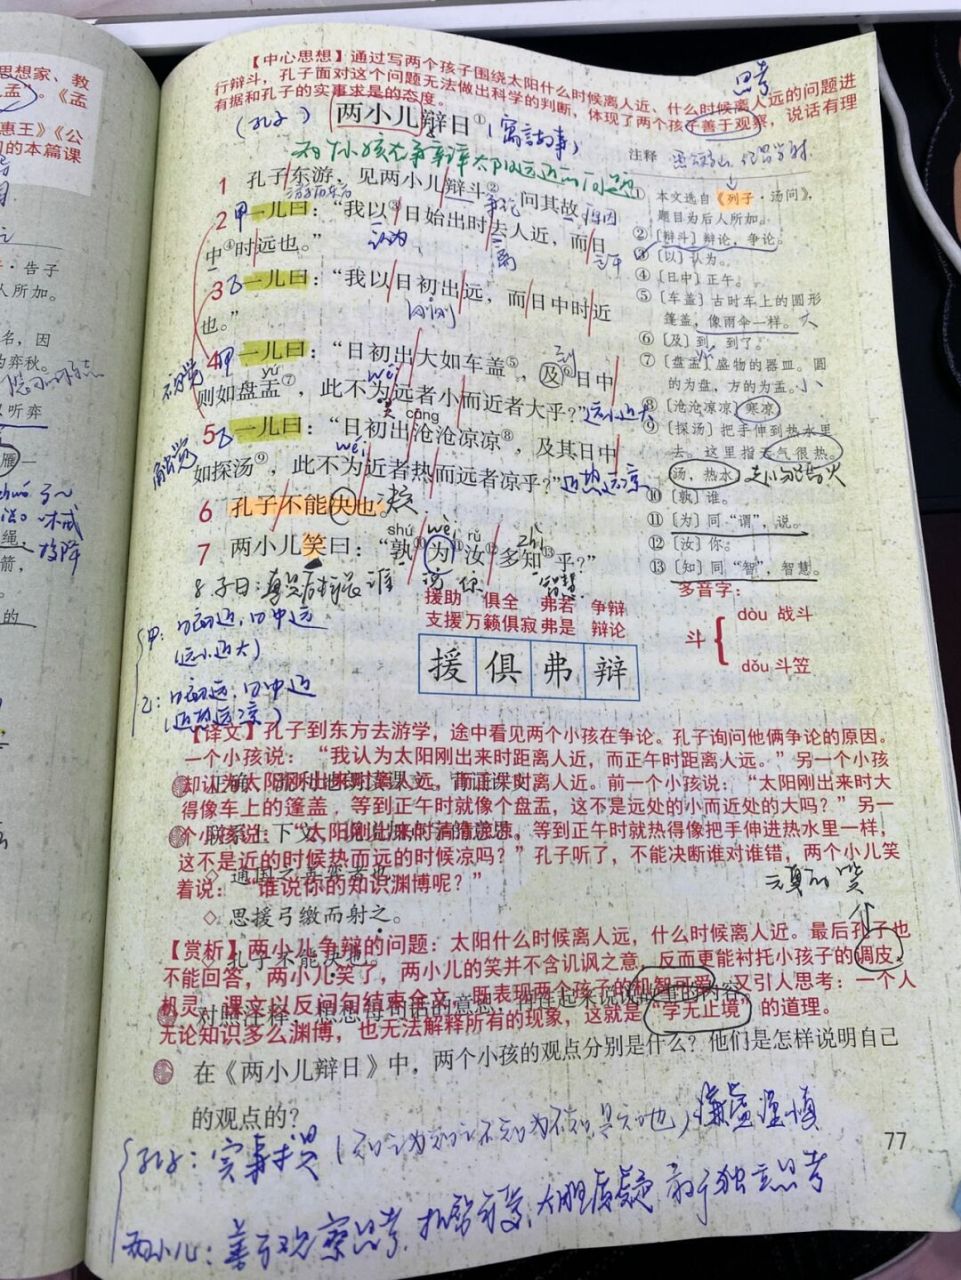 思想家、教
孟”。《孟
惠王》《公
的本篇课
·告子
人所加。
名，因
为弈秋。
以听弈
雁一
绳，
箭，
的
【中心思想】通过写两个孩子围绕太阳什么时候离人近、什么时候离人远的问题进
行辩斗，孔子面对这个问题无法做出科学的判断，体现了两个孩子善于观察，说话有理
有据和孔子的实事求是的态度。
思考
（孔子）
两小儿辩日①
（寓言故事）
注释
1 孔子东游，见两小儿辩斗②，问其故。
争论
原因
2 甲 一儿曰：“我以③日始出时去人近，而日
中④时远也。”
认为
离
正午
3 乙 一儿曰：“我以日初出远，而日中时近
也。”
4 甲 一儿曰：“日初出大如车盖⑤，及⑥日中
到
yú
wéi
则如盘盂⑦，此不为远者小而近者大乎？”
远小近大
视觉
cāng
5 乙 一儿曰：“日初出沧沧凉凉⑧，及其日中
wéi
如探汤⑨，此不为近者热而远者凉乎？”
近热远凉
触觉
6 孔子不能决也。
shú wèi rǔ zhì
7 两小儿笑曰：“孰⑩为⑪汝⑫多知⑬乎？”
谁 谓 你 智慧
① 本文选自《列子·汤问》，
题目为后人所加。
② 〔辩斗〕辩论，争论。
③ 〔以〕认为。
④ 〔日中〕正午。
⑤ 〔车盖〕古时车上的圆形
篷盖，像雨伞一样。大
⑥ 〔及〕到，到了。
⑦ 〔盘盂〕盛物的器皿。圆
的为盘，方的为盂。小
⑧ 〔沧沧凉凉〕寒凉。
⑨ 〔探汤〕把手伸到热水里
去。这里指天气很热。
汤，热水
⑩ 〔孰〕谁。
⑪ 〔为〕同“谓”，说。
⑫ 〔汝〕你。
⑬ 〔知〕同“智”，智慧。
甲：日初近，日中远
（远小近大）
乙：日初远，日中近
（近热远凉）
援助 俱全 弗若 争辩
支援 万籁俱寂 弗是 辩论
援 俱 弗 辩
多音字：
斗
dòu 战斗
dǒu 斗笠
【译文】孔子到东方去游学，途中看见两个小孩在争论。孔子询问他俩争论的原因。
一个小孩说：“我认为太阳刚出来时距离人近，而正午时距离人远。”另一个小孩
却认为太阳刚出来时离人远，而正午时离人近。前一个小孩说：“太阳刚出来时大
得像车上的篷盖，等到正午时就像个盘盂，这不是远处的小而近处的大吗？”另一
个小孩说：“太阳刚出来时清清凉凉，等到正午时就热得像把手伸进热水里一样，
这不是近的时候热而远的时候凉吗？”孔子听了，不能决断谁对谁错，两个小儿笑
着说：“谁说你的知识渊博呢？”
◇ 通国之善弈者也。
◇ 思援弓缴而射之。
◇ 孔子不能决也。
【赏析】两小儿争辩的问题：太阳什么时候离人远，什么时候离人近。最后孔子也
不能回答，两小儿笑了，两小儿的笑并不含讥讽之意，反而更能衬托小孩子的调皮、
机灵。课文以反问句结束全文，既表现两个孩子的机智可爱，又引人思考：一个人
无论知识多么渊博，也无法解释所有的现象，这就是“学无止境”的道理。
在《两小儿辩日》中，两个小孩的观点分别是什么？他们是怎样说明自己
的观点的？
孔子：实事求是（知之为知之不知为不知是知也）谦虚谨慎
两小儿：善于观察思考，大胆质疑 敢于独立思考
77